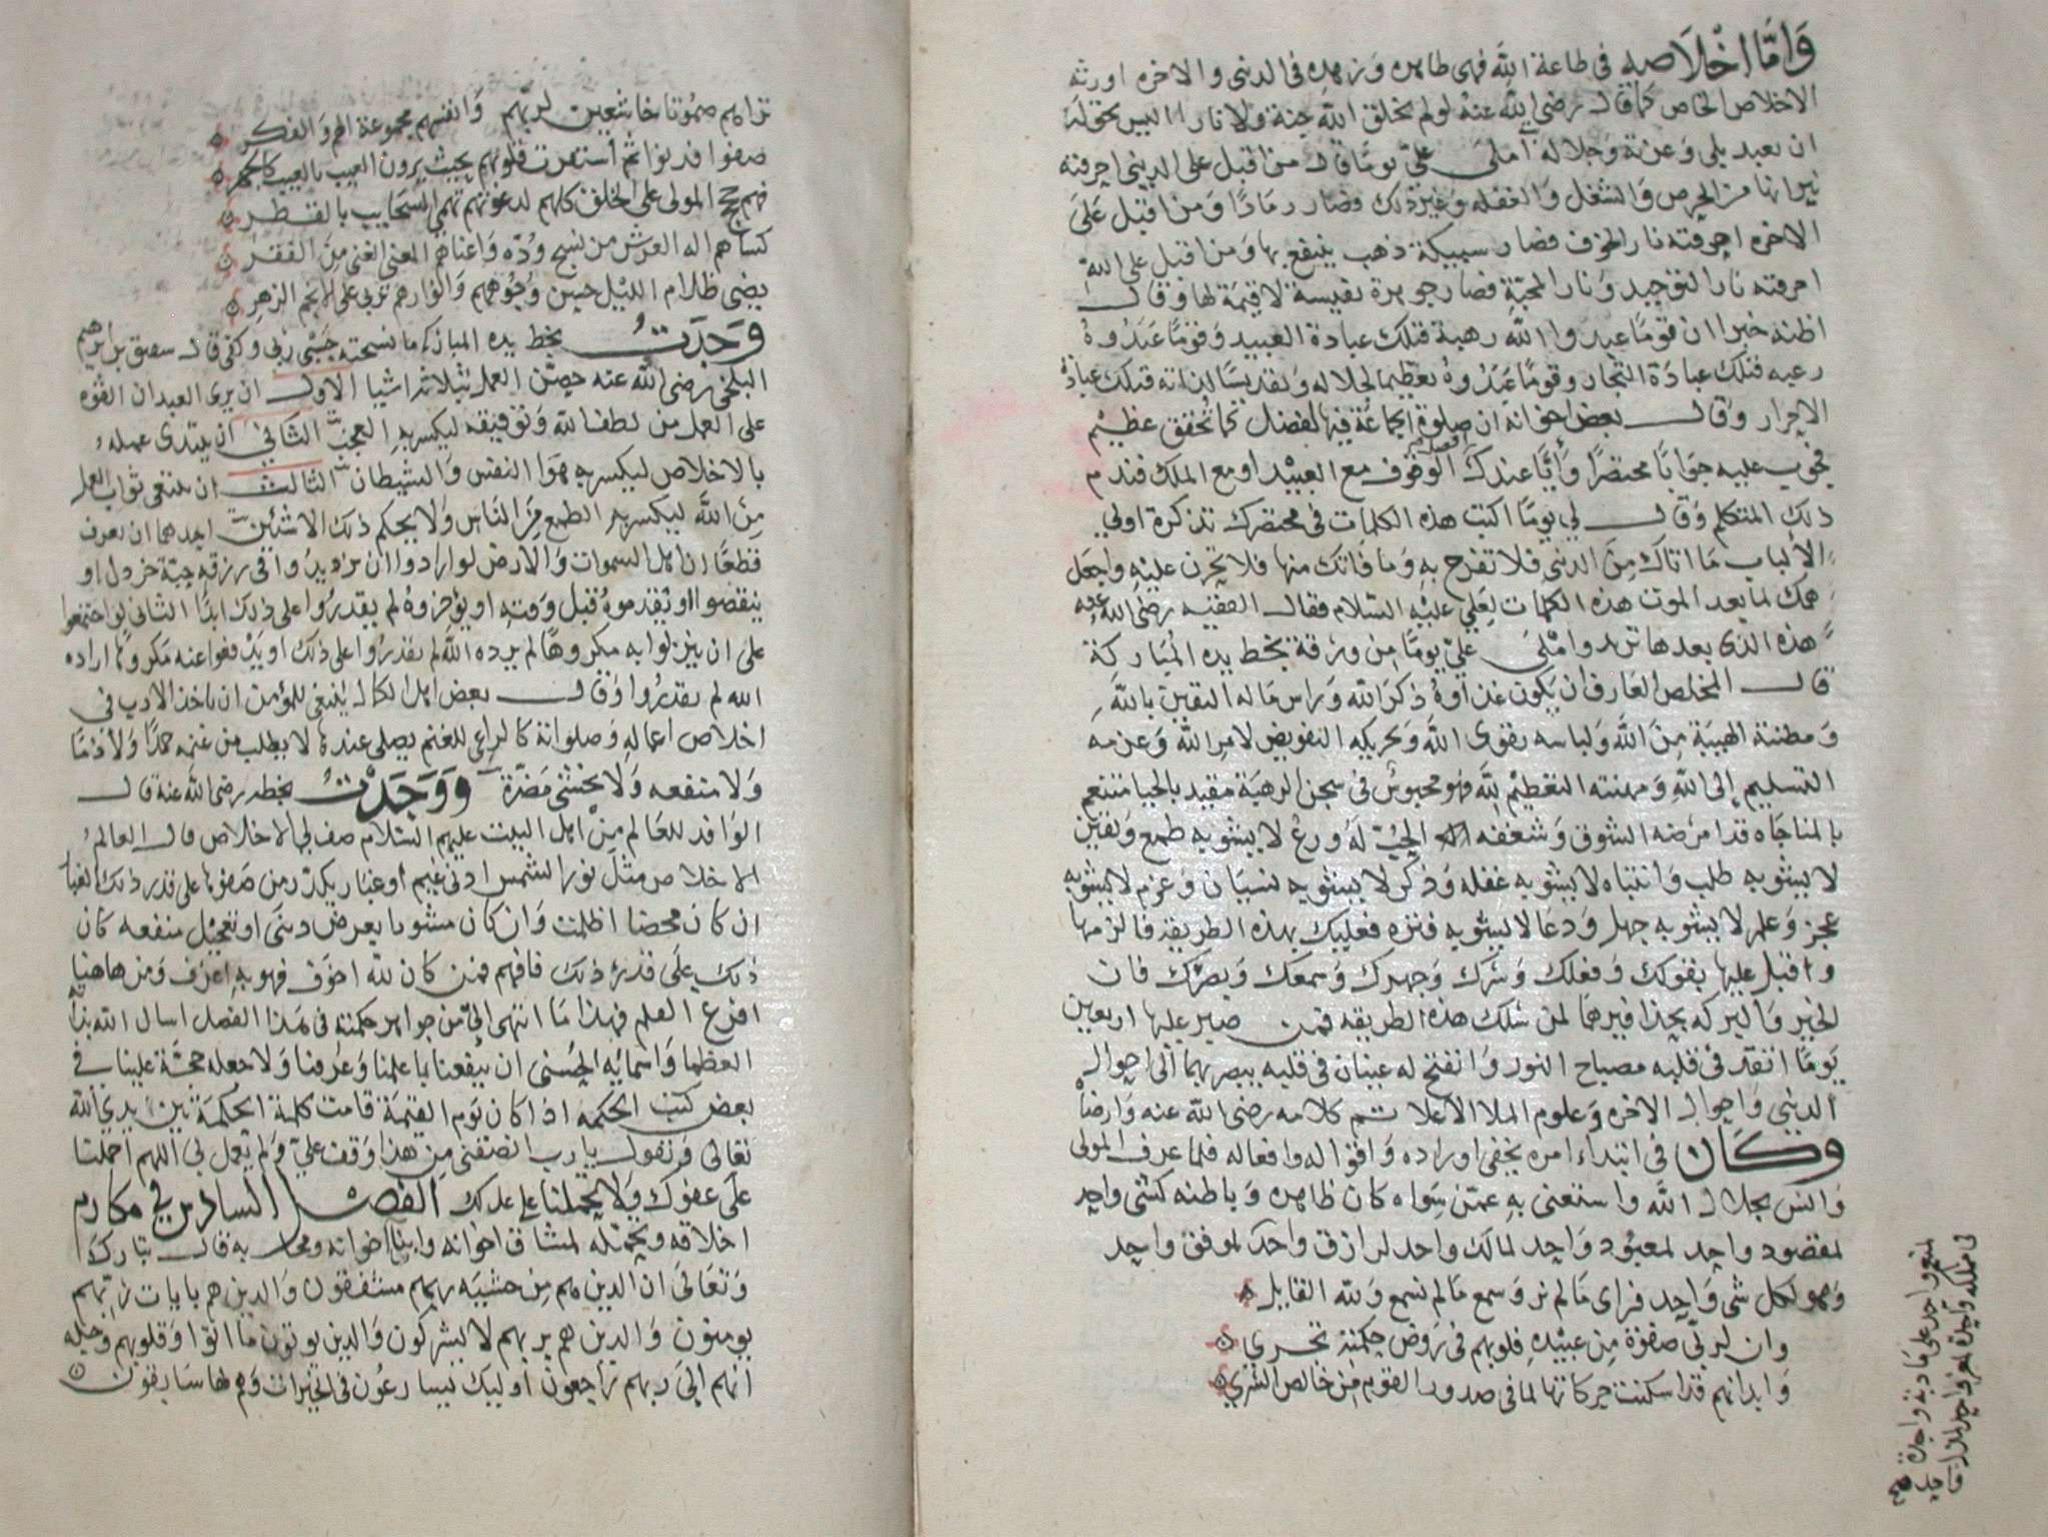 وَامَّا اخْلَاصه في طاعة الله فهى ظاهره وزهده في الدنى والاخره اورثه
الاخلاص الخاص كما قال رضي الله عنه لو لم يخلق الله جنة ولا نارا اليس بحق له
ان يعبد بلى وعزة وجلاله أملى علي يومًا قال من اقبل على الدنى احرقته
نيرانها من الحرص والشغل والغفله وغير ذلك فصار رمادًا ومن اقبل على
الاخره احرقته نار الخوف فصار سبيكة ذهب ينتفع بها ومن اقبل على الله
احرقته نار التوحيد ونار المحبة فصار جوهرة نفيسة لا قيمة لها وقال
اظنه خبرا ان قومًا عبدوا الله رهبة فتلك عبادة العبيد وقومًا عبدوه
رغبه فتلك عبادة التجار وقومًا عبدوه تعظيما لجلاله وتقديسًا لذاته فتلك عبادة
الاحرار وقال بعض اخوانه ان صلوة الجماعة فيها لفضل كما تحقق عظيم
فجوب عليه جوابًا مختصرًا وأيما عندك افضل الوقوف مع العبيد او مع الملك فندم
ذلك المتكلم وقال لي يومًا اكتب هذه الكلمات في مختصرك تذكرة اولي
الألباب ما اتاك من الدنى فلا تفرح به وما فاتك منها فلا تحزن عليه واجعل
همك لما بعد الموت هذه الكلمات لعلي عليه السلام فقال الفقيه رضي الله عنه
هذه الذى بعدها تزهد واملى علي يومًا من ورقة بخط يده المباركة
قال المخلص العارف ان يكون غذاوه ذكر الله وراس ماله اليقين بالله
ومطيته الهيبة من الله ولباسه تقوى الله وتحريكه التفويض لامر الله وعزمه
التسليم إلى الله ومهنته التعظيم لله فهو محبوس في سجن الرهبة مقيد بالحيا متنعم
بالمناجاه قد امرضه الشوق وشعفه الحب له ورع لا يشوبه طمع ويقين
لا يشوبه طلب وانتباه لا يشوبه غفله وذكر لا يشوبه نسيان وعزم لا يشوبه
عجز وعلم لا يشوبه جهل ودعا لا يشوبه فتره فعليك بهذه الطريقة فالزمها
واقبل عليها بقولك وفعلك وسرك وجهرك وسمعك وبصرك فان
الخير والبركه بحذافيرهما لمن سلك هذه الطريقه فمن صبر عليها اربعين
يومًا اتقد في قلبه مصباح النور وانفتح له عينان في قلبه يبصر بهما الى احوال
الدنى واحوال الاخره وعلوم الملا الاعلا تم كلامه رضي الله عنه وارضاه
وكان في ابتداء امره يخفي اوراده واقواله وافعاله فلما عرف المولى
وانس بجلال الله واستغنى به عمن سواه كان ظاهره وباطنه كشى واحد
لمقصود واحد لمعبود واحد لمالك واحد لرازق واحد لموفق واحد
وهو لكل شي واحد فراى ما لم نر وسمع ما لم نسمع ولله القايل
وان لربي صفوة من عبيده قلوبهم في روض حكمته تجري
وابدانهم قد اسكنت حركاتها لما في صدور القوم من خالص السري
لمنعم واحد على مادبة واحدة
في مملكه وليدة لعز واحد
تراهم صموتا خاشعين لربهم وانفسهم مجموعة الهم والفكر
صفوا فدنوا ثم استنارت قلوبهم بحيث يرون الغيب بالغيب كالجهر
فهم حجج المولى على الخلق كلهم لدعوتهم تهمي السحايب بالقطر
كساهم اله العرش من نسج وده واغناهم المغني الغني من الفقر
يضي ظلام الليل حسن وجوههم وانوارهم تربي على الانجم الزهر
وجدت بخط يده المباركه ما نسخته حسبي ربي وكفى قال شقيق بن ابراهيم
البلخي رضي الله عنه حصن العمل بثلاثة اشيا الاول ان يرى العبد ان القوه
على العمل من لطف الله وتوفيقه ليكسر به العجب الثاني ان يبتدى عمله
بالاخلاص ليكسر به هوا النفس والشيطان الثالث ان يبتغي ثواب العمل
من الله ليكسر به الطمع من الناس ولا يحكم ذلك الا شئين احدهما ان يعرف
قطعًا ان اهل السموات والارض لو ارادوا ان يزيدوا في رزقه حبة خردل او
ينقصوا او يقدموه قبل وقته او يؤخروه لم يقدروا على ذلك ابدًا الثاني لو اجتمعوا
على ان ينزلوا به مكروهًا لم يرده الله لم يقدروا على ذلك او يدفعوا عنه مكروها اراده
الله لم يقدروا وقال بعض اهل الكمال ينبغي للمؤمن ان ياخذ الادب في
اخلاص اعماله وصلواته كالراعي للغنم يصلي عندها لا يطلب من غنمه حمدًا ولا ذمًا
ولا منفعه ولا يخشى مضرة ووجدت بخطه رضي الله عنه قال
الوافد للعالم من اهل البيت عليهم السلام صف لي الاخلاص قال العالم
الاخلاص مثل نور الشمس ادنى غيم او غبار يكدر من صفوها على قدر ذلك الغبار
ان كان محضا اظلمت وان كان مشوبا بعرض دنى او تعجيل منفعه كان
ذلك على قدره ذلك فافهم فمن كان لله اخوف فهو به اعرف ومن هاهنا
افزع العلم فهذا ما انتهى الي من جواهر حكمته في هذا الفصل اسال الله بذاته
العظما واسمائه الحسنى ان ينفعنا بما علمنا وعرفنا ولا جعله حجة علينا في
بعض كتب الحكمه اذا كان يوم القيمة قامت كلمة الحكمة بين يدي الله
تعالى وتقول يارب انصفني من هذا وقف علي ولم يعمل بي اللهم احملنا
على عفوك ولا تحملنا على عدلك الفصل السادس في مكارم
اخلاقه وتحمله لمشاق اخوانه وابنا اخوانه قال تبارك
وتعالى ان الذين هم من خشيه ربهم مشفقون والذين هم بايات ربهم
يومنون والذين هم بربهم لا يشركون والذين يوتون ما اتوا وقلوبهم وجله
انهم إلى ربهم راجعون أوليك يسارعون في الخيرات وهم لها سابقون